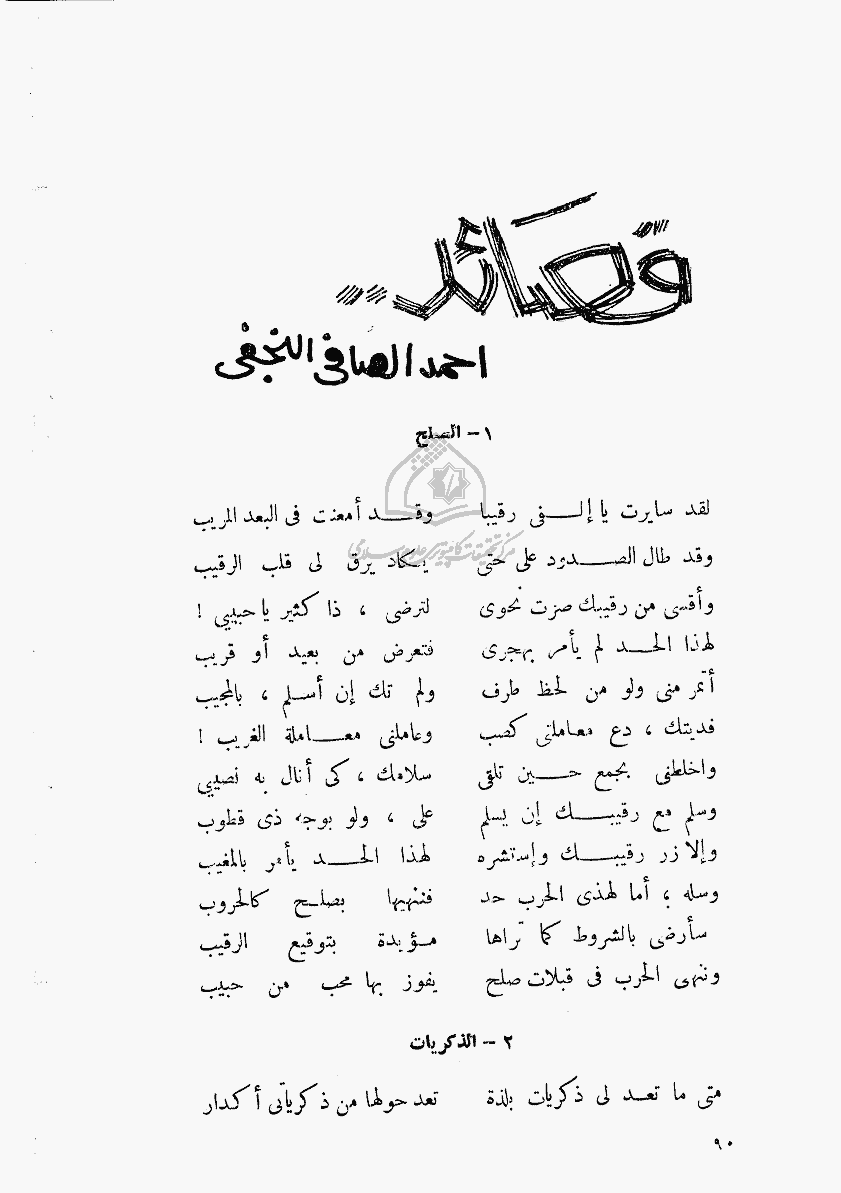 قصائد..
احمد الصافي النجفي
١ – الصلح
لقد سايرت يا إلـــفى رقيبا وقـــد أمعنت فى البعد المريب
وقد طال الصـــدود على حتى يكاد يرق لى قلب الرقيب
مركز تحقيقات كامپيوتري علوم اسلامي
وأقسى من رقيبك صرت نحوى لترضى ، ذا كثير يا حبيبي !
لهذا الحـــد لم يأمر بهجرى فتعرض من بعيد أو قريب
أتمر منى ولو من لحظ طرف ولم تك إن أسلم ، بالمجيب
فديتك ، دع معاملتى كصب وعاملنى معـــاملة الغريب !
واخلطنى بجمع حـــين تلقى سلامك ، كى أنال به نصيبي
وسلم مع رقيبـــك إن يسلم على ، ولو بوجه ذى قطوب
وإلا زر رقيبـــك وإستشره لهذا الحـــد يأمر بالمغيب
وسله ؛ أما لهذى الحرب حد فننهيها بصلـح كالحروب
سأرضى بالشروط كما تراها مـؤيدة بتوقيع الرقيب
وننهى الحرب فى قبلات صلح يفوز بها محب من حبيب
٢ – الذكريات
متى ما تعـد لى ذكريات بلذة تعد حولها من ذكرياتى أكدار
٩٠